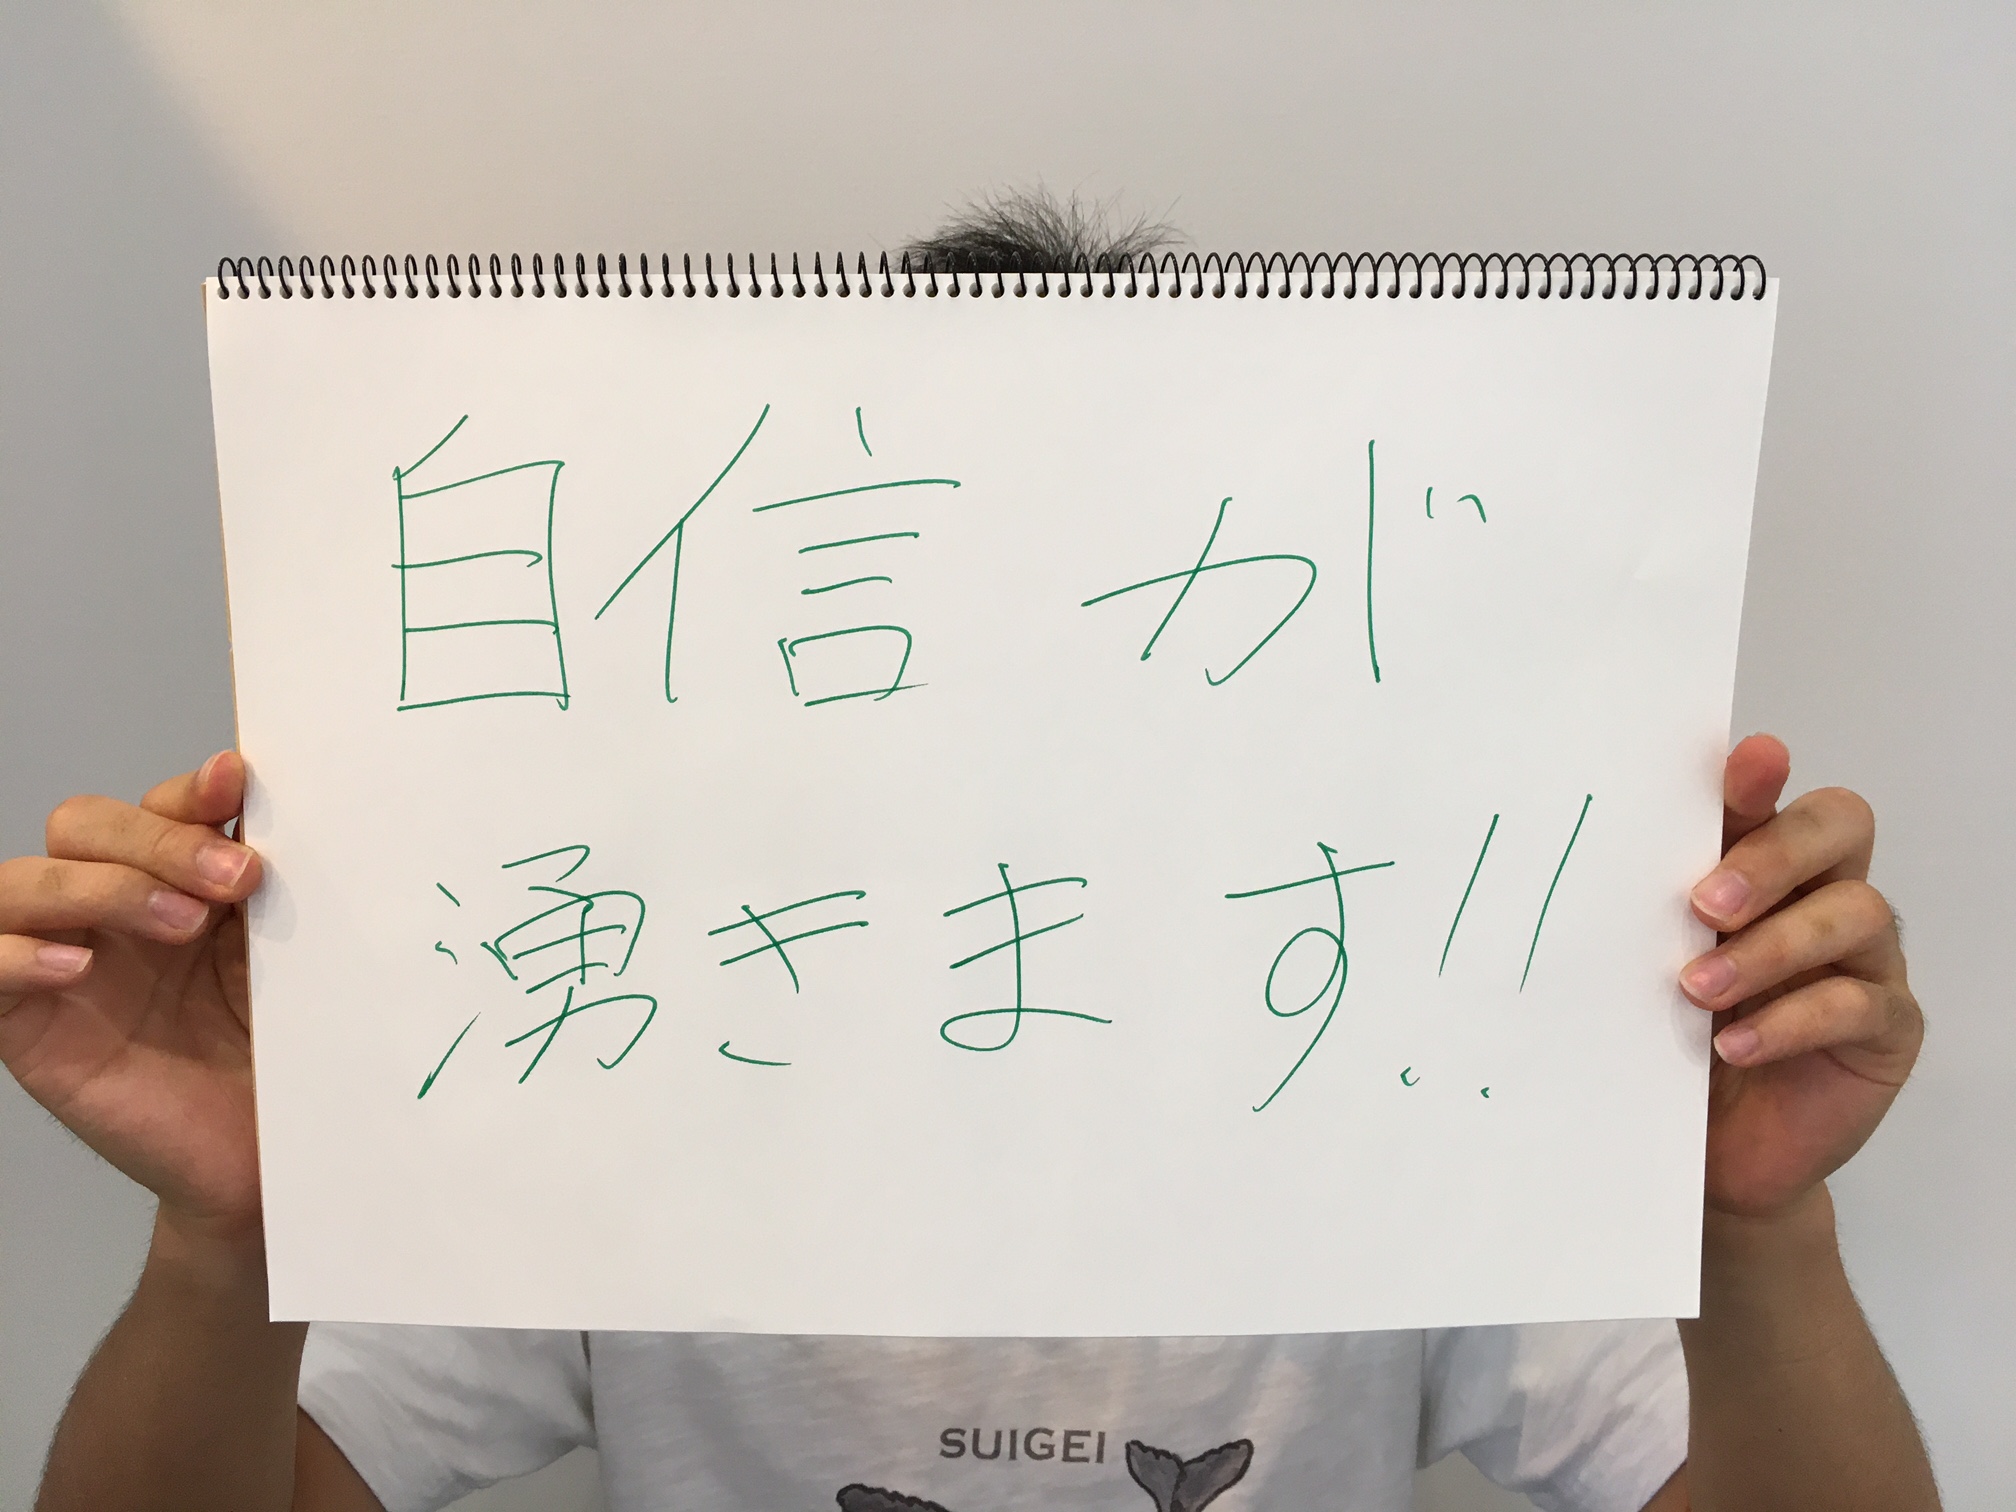 自信が
湧きます!!
SUIGEI